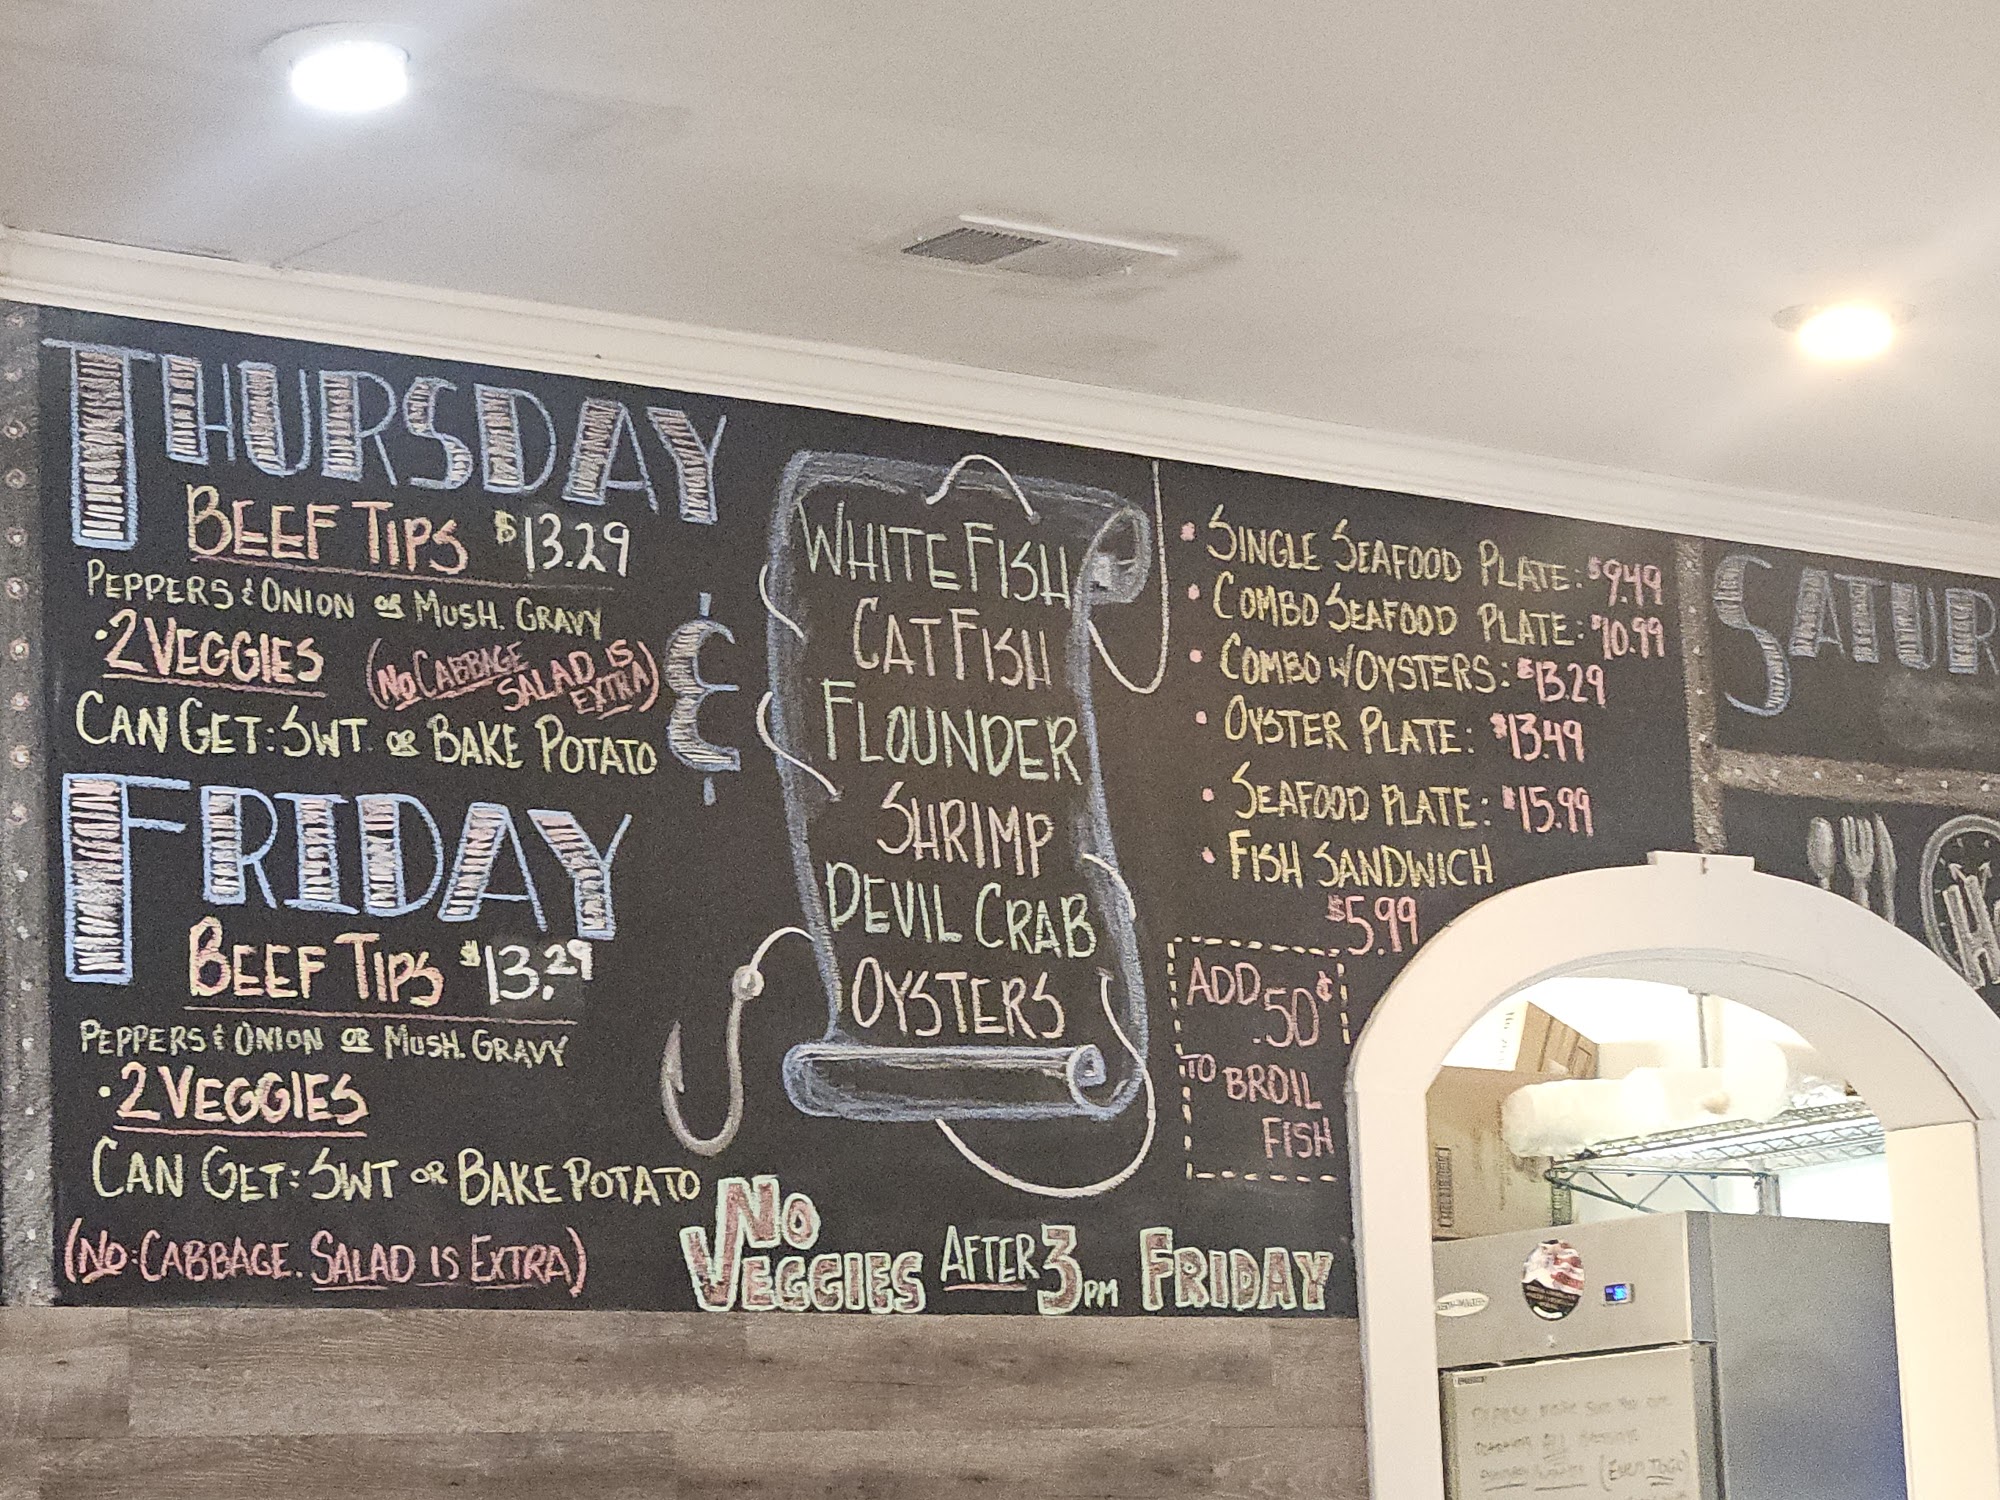 THURSDAY
BEEF TIPS $13.29
PEPPERS & ONION OR MUSH. GRAVY
•2 VEGGIES (NO CABBAGE SALAD IS EXTRA)
CAN GET: SWT. OR BAKE POTATO
&
FRIDAY
BEEF TIPS $13.29
PEPPERS & ONION OR MUSH. GRAVY
•2 VEGGIES
CAN GET: SWT OR BAKE POTATO
(NO: CABBAGE. SALAD IS EXTRA)
WHITE FISH
CATFISH
FLOUNDER
SHRIMP
DEVIL CRAB
OYSTERS
• SINGLE SEAFOOD PLATE: $9.49
• COMBO SEAFOOD PLATE: $10.99
• COMBO W/OYSTERS: $13.29
• OYSTER PLATE: $13.49
• SEAFOOD PLATE: $15.99
• FISH SANDWICH
$5.99
ADD
.50¢
TO BROIL
FISH
NO
VEGGIES AFTER 3PM FRIDAY
SATUR
(EVEN TOGO)